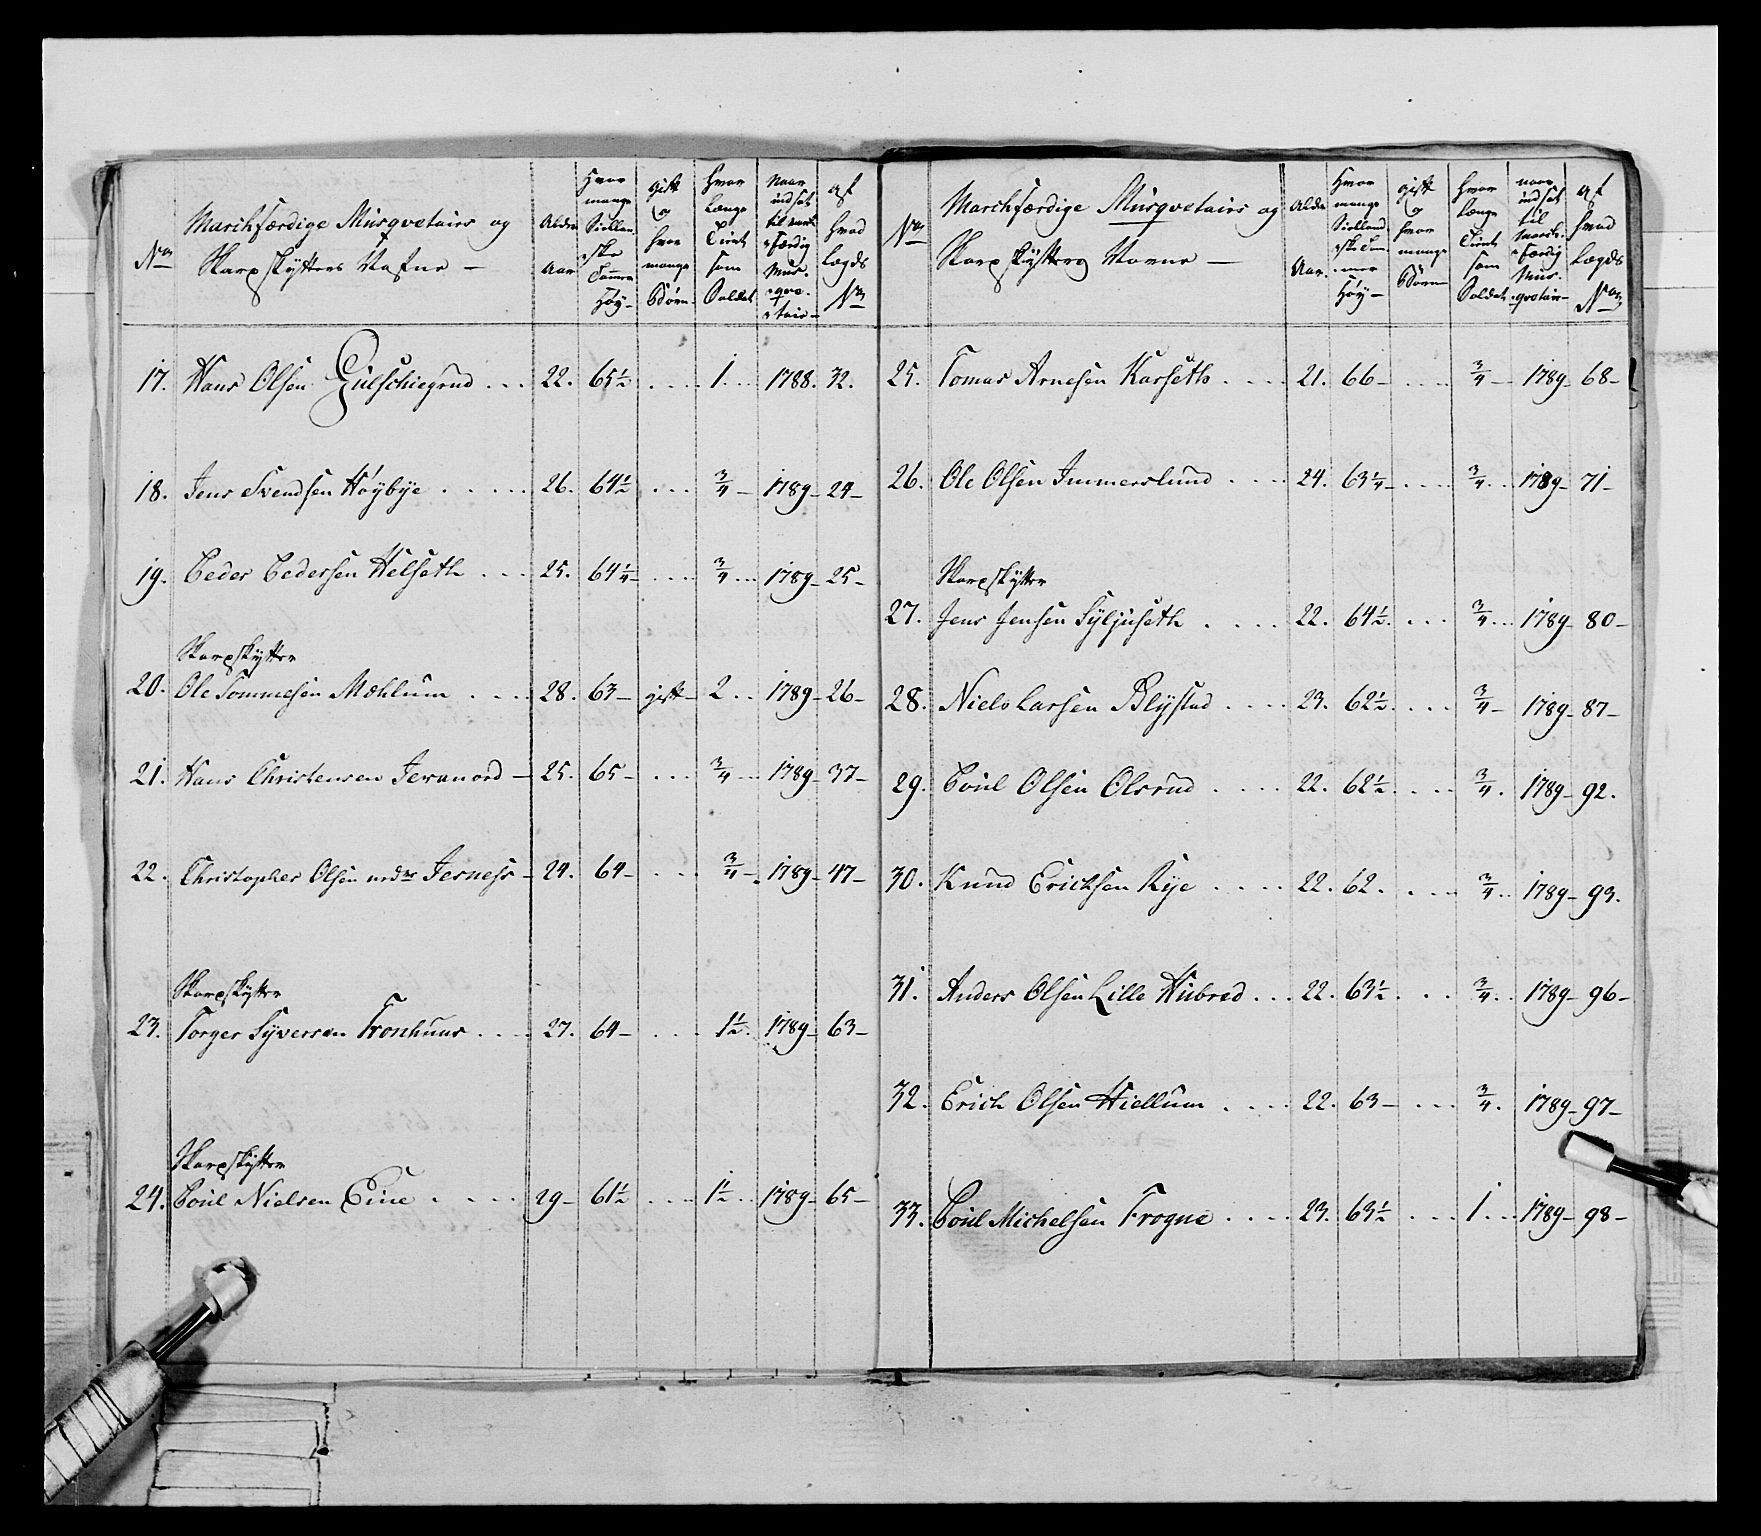 No Marchfærdige Musqvetairs og Skarpskytters Nafne — Alder Aar Hvor mange Siellandske Tommer Høy — gift og hvor mange Børn hvor Længe Tient som Soldat Naar indsat til march færdig Musqvetair — af hvad Lægds No
17. Hans Olsen Gulschiegrud . . . 22. 65½ . . . . 1 . . . 1788. 32.
18. Jens Svendsen Høybye . . . . . 26. 64½ . . . ¾ — 1789 — 24 —
19. Peder Pedersen Helseth . . . 25. 64¼ . . . . ¾ . . . 1789 — 25 —
Skarpskytter
20. Ole Tommesen Mæhlum . . . . 28. 63 — gift — 2 . . 1789 — 26 —
21. Hans Christensen Jevanord — 25. 65 — . . . ¾ . . . 1789 — 37 —
22. Christopher Olsen nedre Jerness — 24. 64 — . . . ¾ — 1789 — 47 —
Skarpskytter
23. Torger Syversen Tronhuus . . . . 27. 64 — . . . 1½ . 1789 — 63 —
Skarpskytter
24. Poul Nielsen Eine . . . . . 29 — 61½ . . . . 1½ . . 1789 — 65 —
No Marchfærdige Musqvetairs og Skarpskytters Navne — Alder Aar. Hvor mange Siellandske Tommer Høy — gift og hvor mange Børn hvor Længe Tient som Soldat naar indsat til march færdig Musqvetair — af hvad Lægds No
25. Tomas Arnesen Karseth . . . . 21. 66 — . . . . ¾ — 1789 — 68 —
26. Ole Olsen Immerslund . . . . 24. 63¼ — . . . . ¾ . . 1789 — 71 —
Skarpskytter
27. Jens Jensen Syljuseth . . . . 22. 64½ . . . . ¾ . . . 1789 — 80 —
28. Niels Larsen Blystad . . . . 23. 62½ . . . . ¾ — 1789 — 87 —
29. Poul Olsen Olsrud . . . . 22. 62½ . . . . ¾ . 1789 — 92.
30. Knud Erichsen Rye . . . . 22. 62. . . . ¾ . . 1789 — 93.
31. Anders Olsen Lille Hubred . . . 22. 63½ . . . ¾ . . 1789 — 96 —
32. Erich Olsen Hiellum . . . . 22. 63 — . . . ¾ . 1789 — 97 —
33. Poul Michelsen Frogne . . . . 23. 63½ . . . 1 . . . 1789 — 98 —